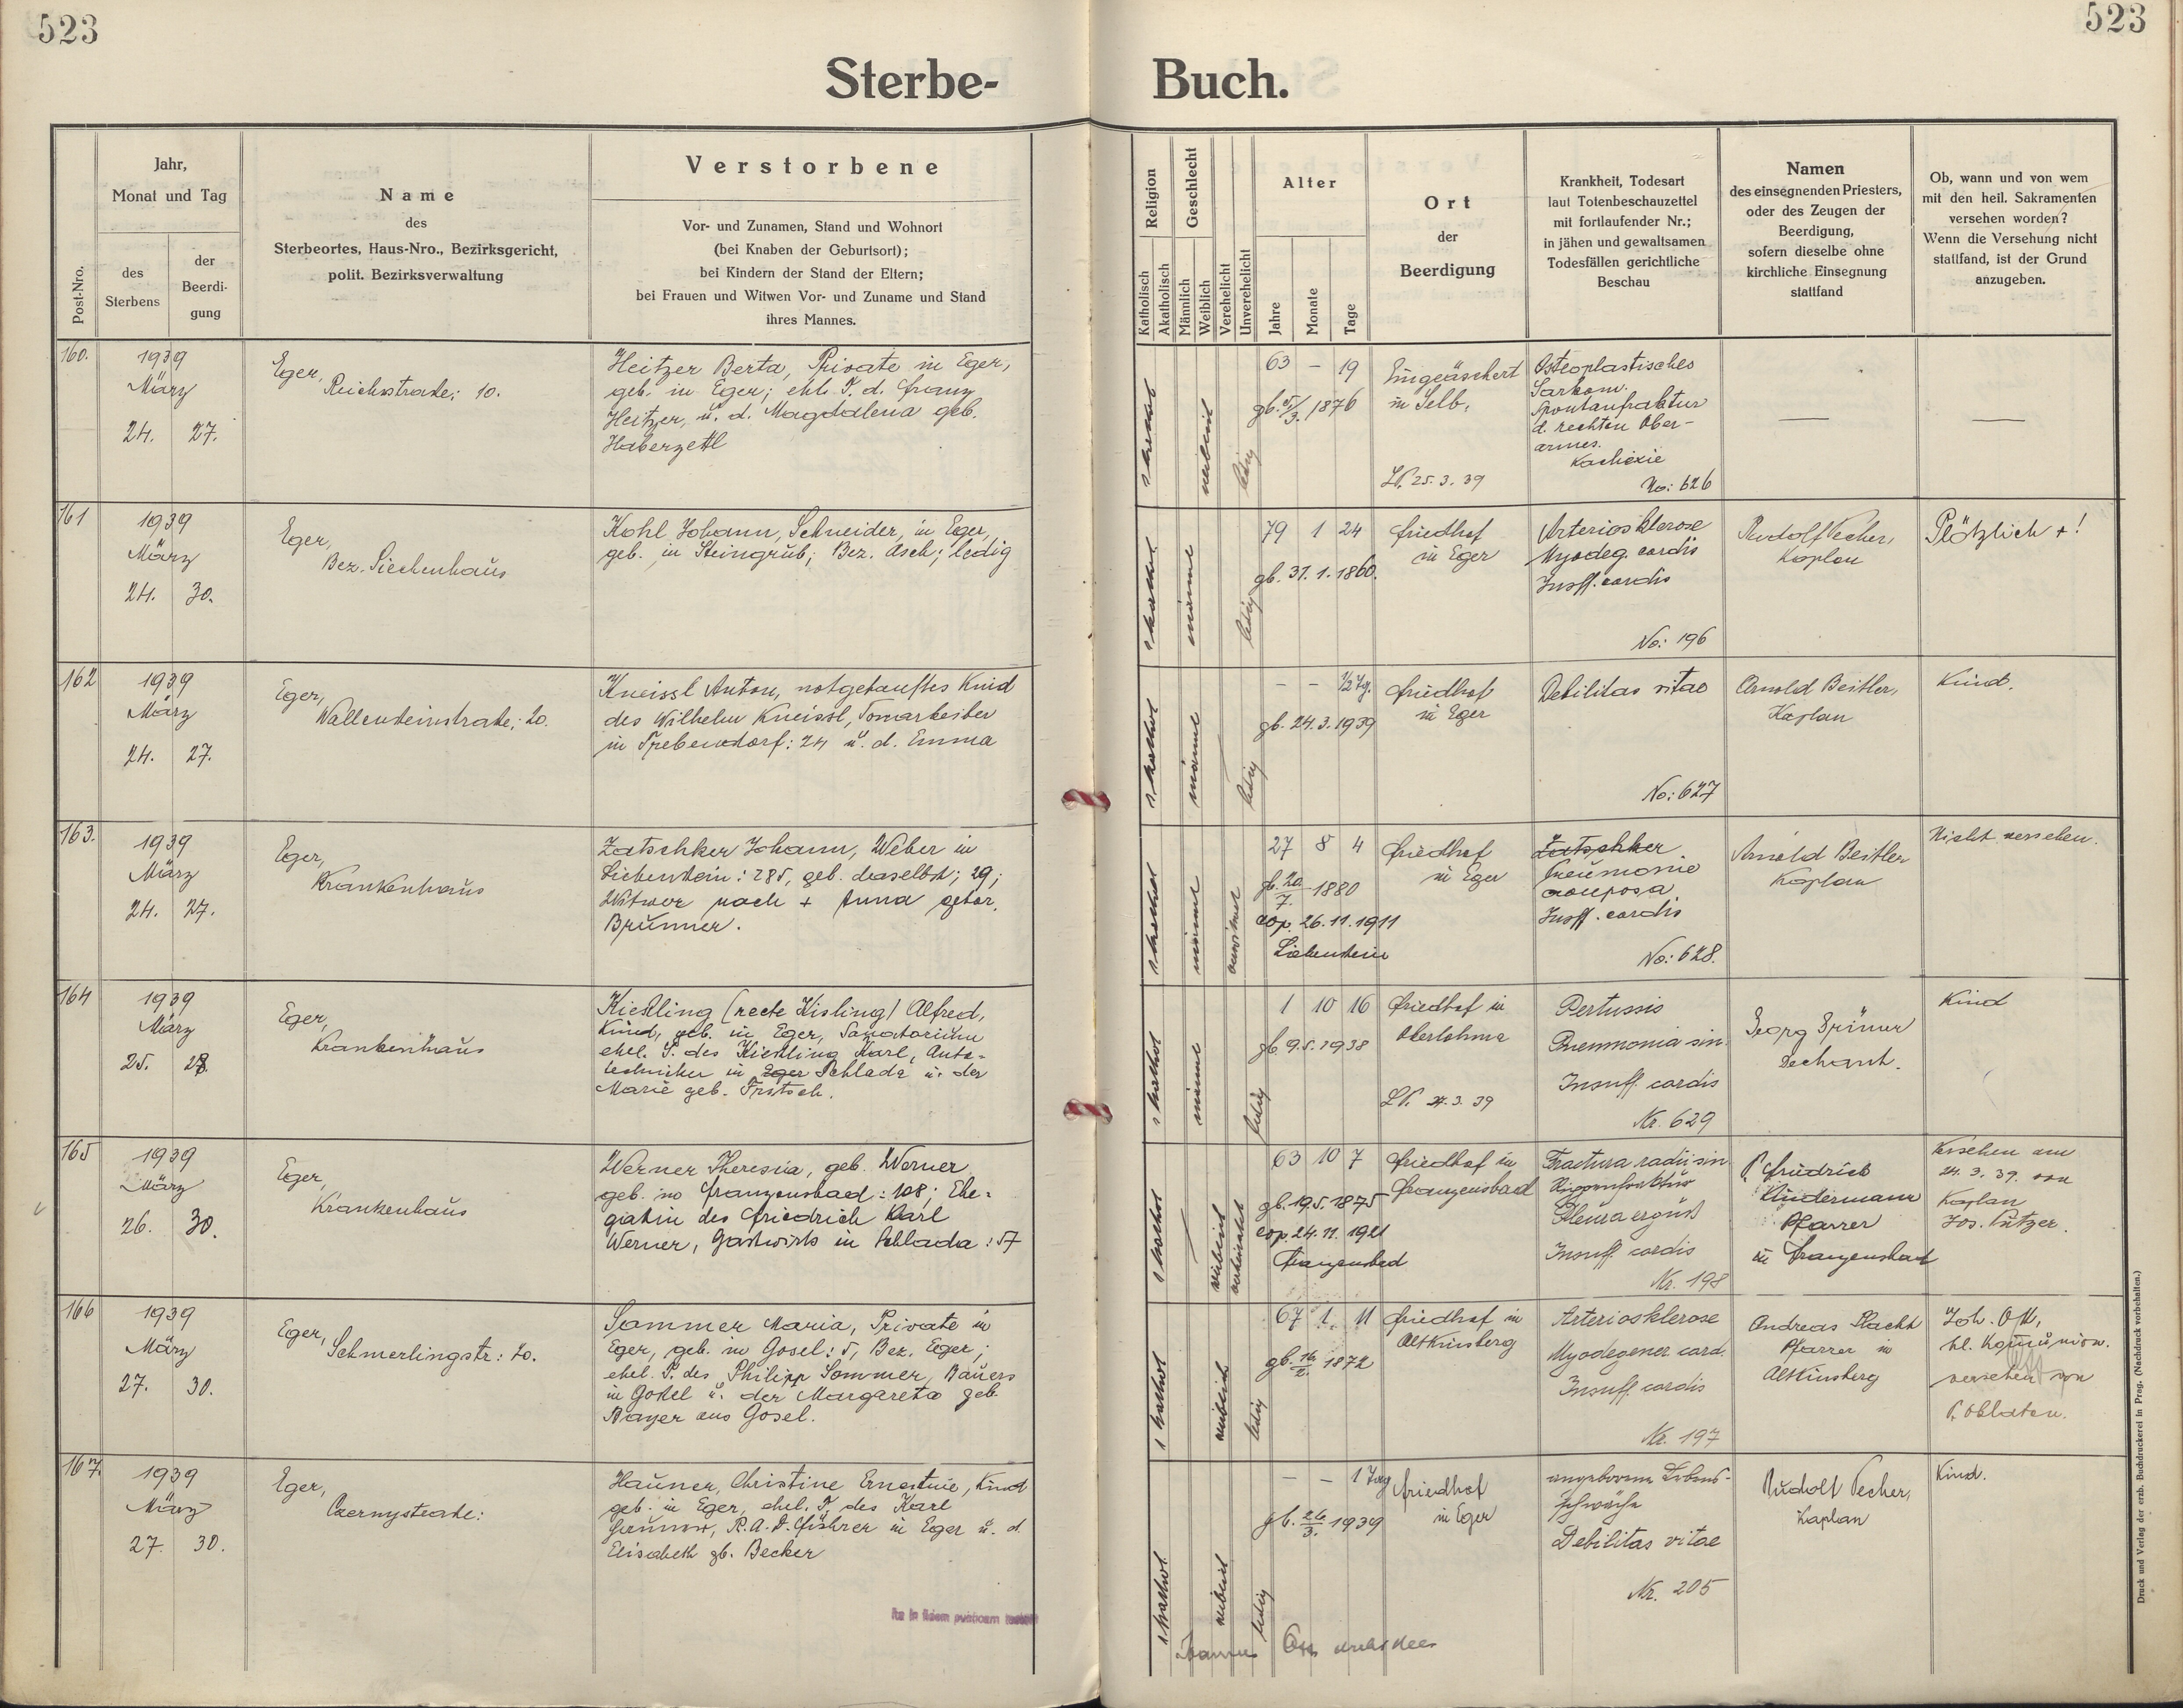 523
523
Sterbe-
Buch.
Post-Nro.
Jahr,
Monat und Tag
des
Sterbens
der
Beerdi-
gung
Name
des
Sterbeortes, Haus-Nro., Bezirksgericht,
polit. Bezirksverwaltung
Verstorbene
Vor- und Zunamen, Stand und Wohnort
(bei Knaben der Geburtsort);
bei Kindern der Stand der Eltern;
bei Frauen und Witwen Vor- und Zuname und Stand
ihres Mannes.
Religion
Katholisch
Akatholisch
Geschlecht
Männlich
Weiblich
Verehelicht
Unverehelicht
Alter
Jahre
Monate
Tage
Ort
der
Beerdigung
Krankheit, Todesart
laut Totenbeschauzettel
mit fortlaufender Nr.;
in jähen und gewaltsamen
Todesfällen gerichtliche
Beschau
Namen
des einsegnenden Priesters,
oder des Zeugen der
Beerdigung,
sofern dieselbe ohne
kirchliche Einsegnung
stattfand
Ob, wann und von wem
mit den heil. Sakramenten
versehen worden?
Wenn die Versehung nicht
stattfand, ist der Grund
anzugeben.
160.
1939
März
24. 27.
Eger,
Reichsstraße: 10.
Heitzer Berta, Private in Eger,
geb. in Eger; ehl. T. d. Franz
Heitzer, u. d. Magdalena geb.
Haberzettl
weiblich
ledig
63 — 19
gb. 5/3. 1876
Eingeäschert
in Selb.
LP. 25. 3. 39
Osteoplastisches
Sarkom.
Spontanfraktur
d. rechten Ober-
armes.
Kachexie
No: 626
—
—
161
1939
März
24. 30.
Eger,
Bez. Siechenhaus
Kohl Johann, Schneider, in Eger,
geb. in Steingrub; Bez. Asch; ledig
männl
ledig
79 1 24
gb. 31. 1. 1860.
Friedhof
in Eger
Arteriosklerose
Myodeg. cordis
Insuff. cordis
No: 196
Rudolf Pecher,
Kaplan
Plötzlich +!
162
1939
März
24. 27.
Eger,
Wallensteinstraße: 20.
Kneissl Anton, notgetauftes Kind
des Wilhelm Kneissl, Tonarbeiter
in Trebendorf: 24 u. d. Emma
männl
ledig
— — 1/2 Tg.
gb. 24. 3. 1939
Friedhof
in Eger
Debilitas vitae
No: 627
Arnold Beitler,
Kaplan
Kind.
163.
1939
März
24. 27.
Eger,
Krankenhaus
Zatschker Johann, Weber in
Liebenstein: 285, geb. daselbst; 29;
Witwer nach + Anna gebor.
Brunner.
männl
verwitwet
27 8 4
gb. 20/7. 1880
cop. 26. 11. 1911
Liebenstein
Friedhof
in Eger
Zatschker
Pneumonie
Insuff. cordis
No: 628.
Arnold Beitler
Kaplan
Nicht versehen.
164
1939
März
25. 28.
Eger,
Krankenhaus
Kießling (recte Kisling) Alfred,
Kind, geb. in Eger, Sanatorium
ehel. S. des Kießling Karl, Auto-
techniker in Eger Schlada u. der
Marie geb. Fritsch.
männl
ledig
1 10 16
gb. 9. 5. 1938
Friedhof in
Oberlohma
LP. 27. 3. 39
Pertussis
Pneumonia sin.
Insuff. cordis
Nr. 629
Georg Brunner
Dechant.
Kind
165
1939
März
26. 30.
Eger,
Krankenhaus
Werner Theresia, geb. Werner
geb. in Franzensbad: 108; Ehe-
gattin des Friedrich Karl
Werner, Gastwirts in Schlada: 57
weiblich
verheiratet
63 10 7
gb. 19. 5. 1875
cop. 24. 11. 1921
Franzensbad
Friedhof in
Franzensbad
Fractura radii sin
Rippenfraktur
Pleuraerguß
Insuff. cordis
Nr. 198
P. Friedrich
Lindermann
Pfarrer
in Franzensbad
Versehen am
24. 3. 39. von
Kaplan
Jos. Putzer.
166
1939
März
27. 30.
Eger,
Schmerlingstr: 20.
Sommer Maria, Private in
Eger, geb. in Gosel: 5, Bez. Eger;
ehel. T. des Philipp Sommer, Bauers
in Gosel u. der Margareta geb.
Mayer aus Gosel.
weiblich
ledig
67 1. 11
gb. 16/2. 1872
Friedhof in
Altkinsberg
Arteriosklerose
Myodegener. card.
Insuff. cordis
Nr. 197
Andreas Placht
Pfarrer in
Altkinsberg
Joh. Ott,
hl. Kommunion.
versehen von
P. Oblaten.
167.
1939
März
27. 30.
Eger,
Czernystraße:
Hauner, Christine Ernestine, Kind
geb. in Eger, ehel. T. des Karl
Hauner, R.A.D. Führer in Eger u. d.
Elisabeth gb. Becker
weiblich
ledig
— — 1 Tag
gb. 26/3. 1939
Friedhof
in Eger
angeborene Lebens-
schwäche
Debilitas vitae
Nr. 205
Rudolf Pecher,
Kaplan
Kind.
Druck und Verlag der erzb. Buchdruckerei in Prag. (Nachdruck vorbehalten.)